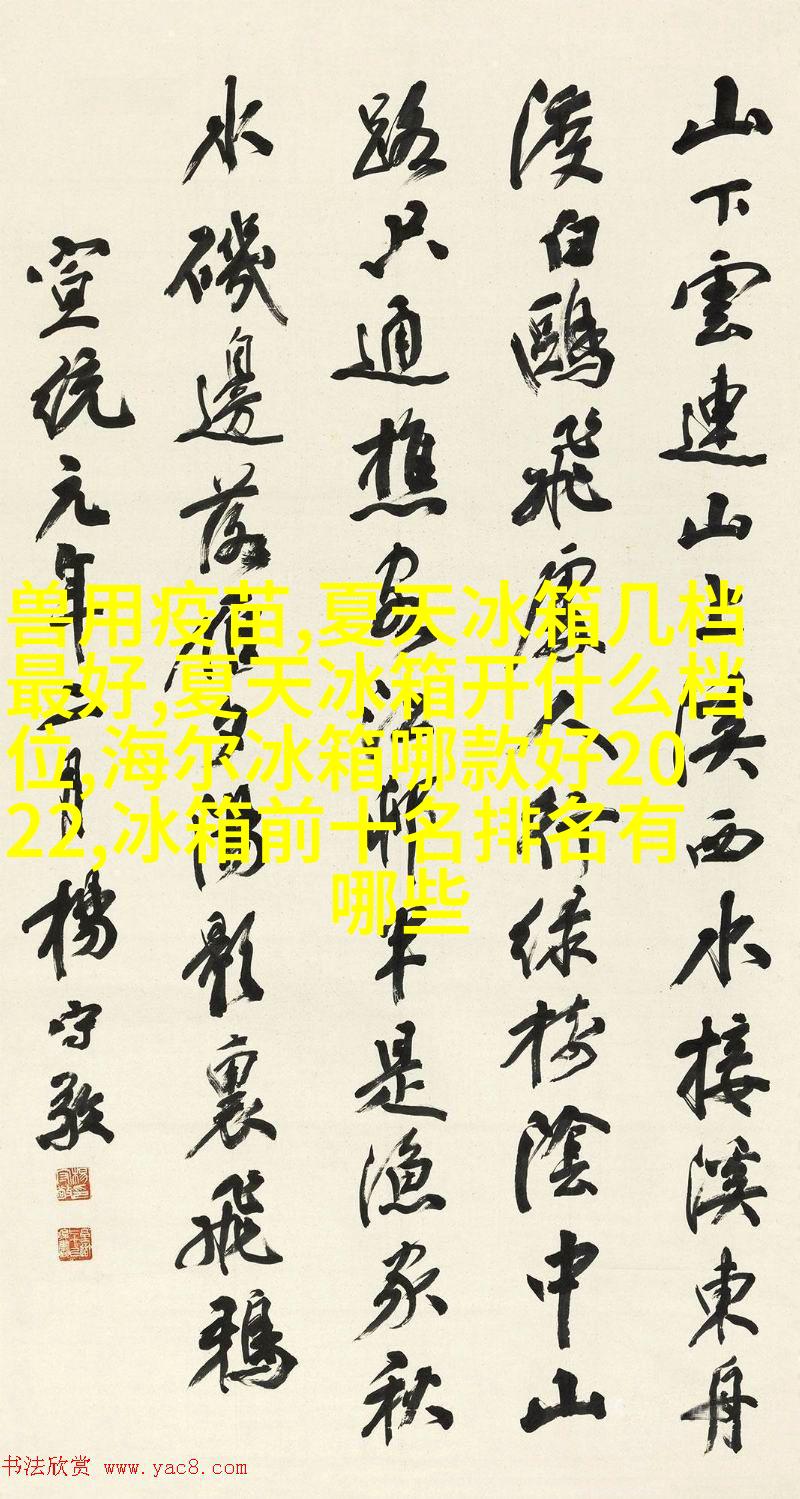 山下雲連山上溪西水接溪東舟
渡白鷗飛處人行綠樹陰中山
路只通樵客江邨半是漁家秋
水磯邊落雁夕陽影裏飛鴉
宣統元年月楊守敬
兽用疫苗,夏天冰箱几档
最好,夏天冰箱开什么档
位,海尔冰箱哪款好20
22,冰箱前十名排名有
哪些
书法欣赏 www.yac8.com